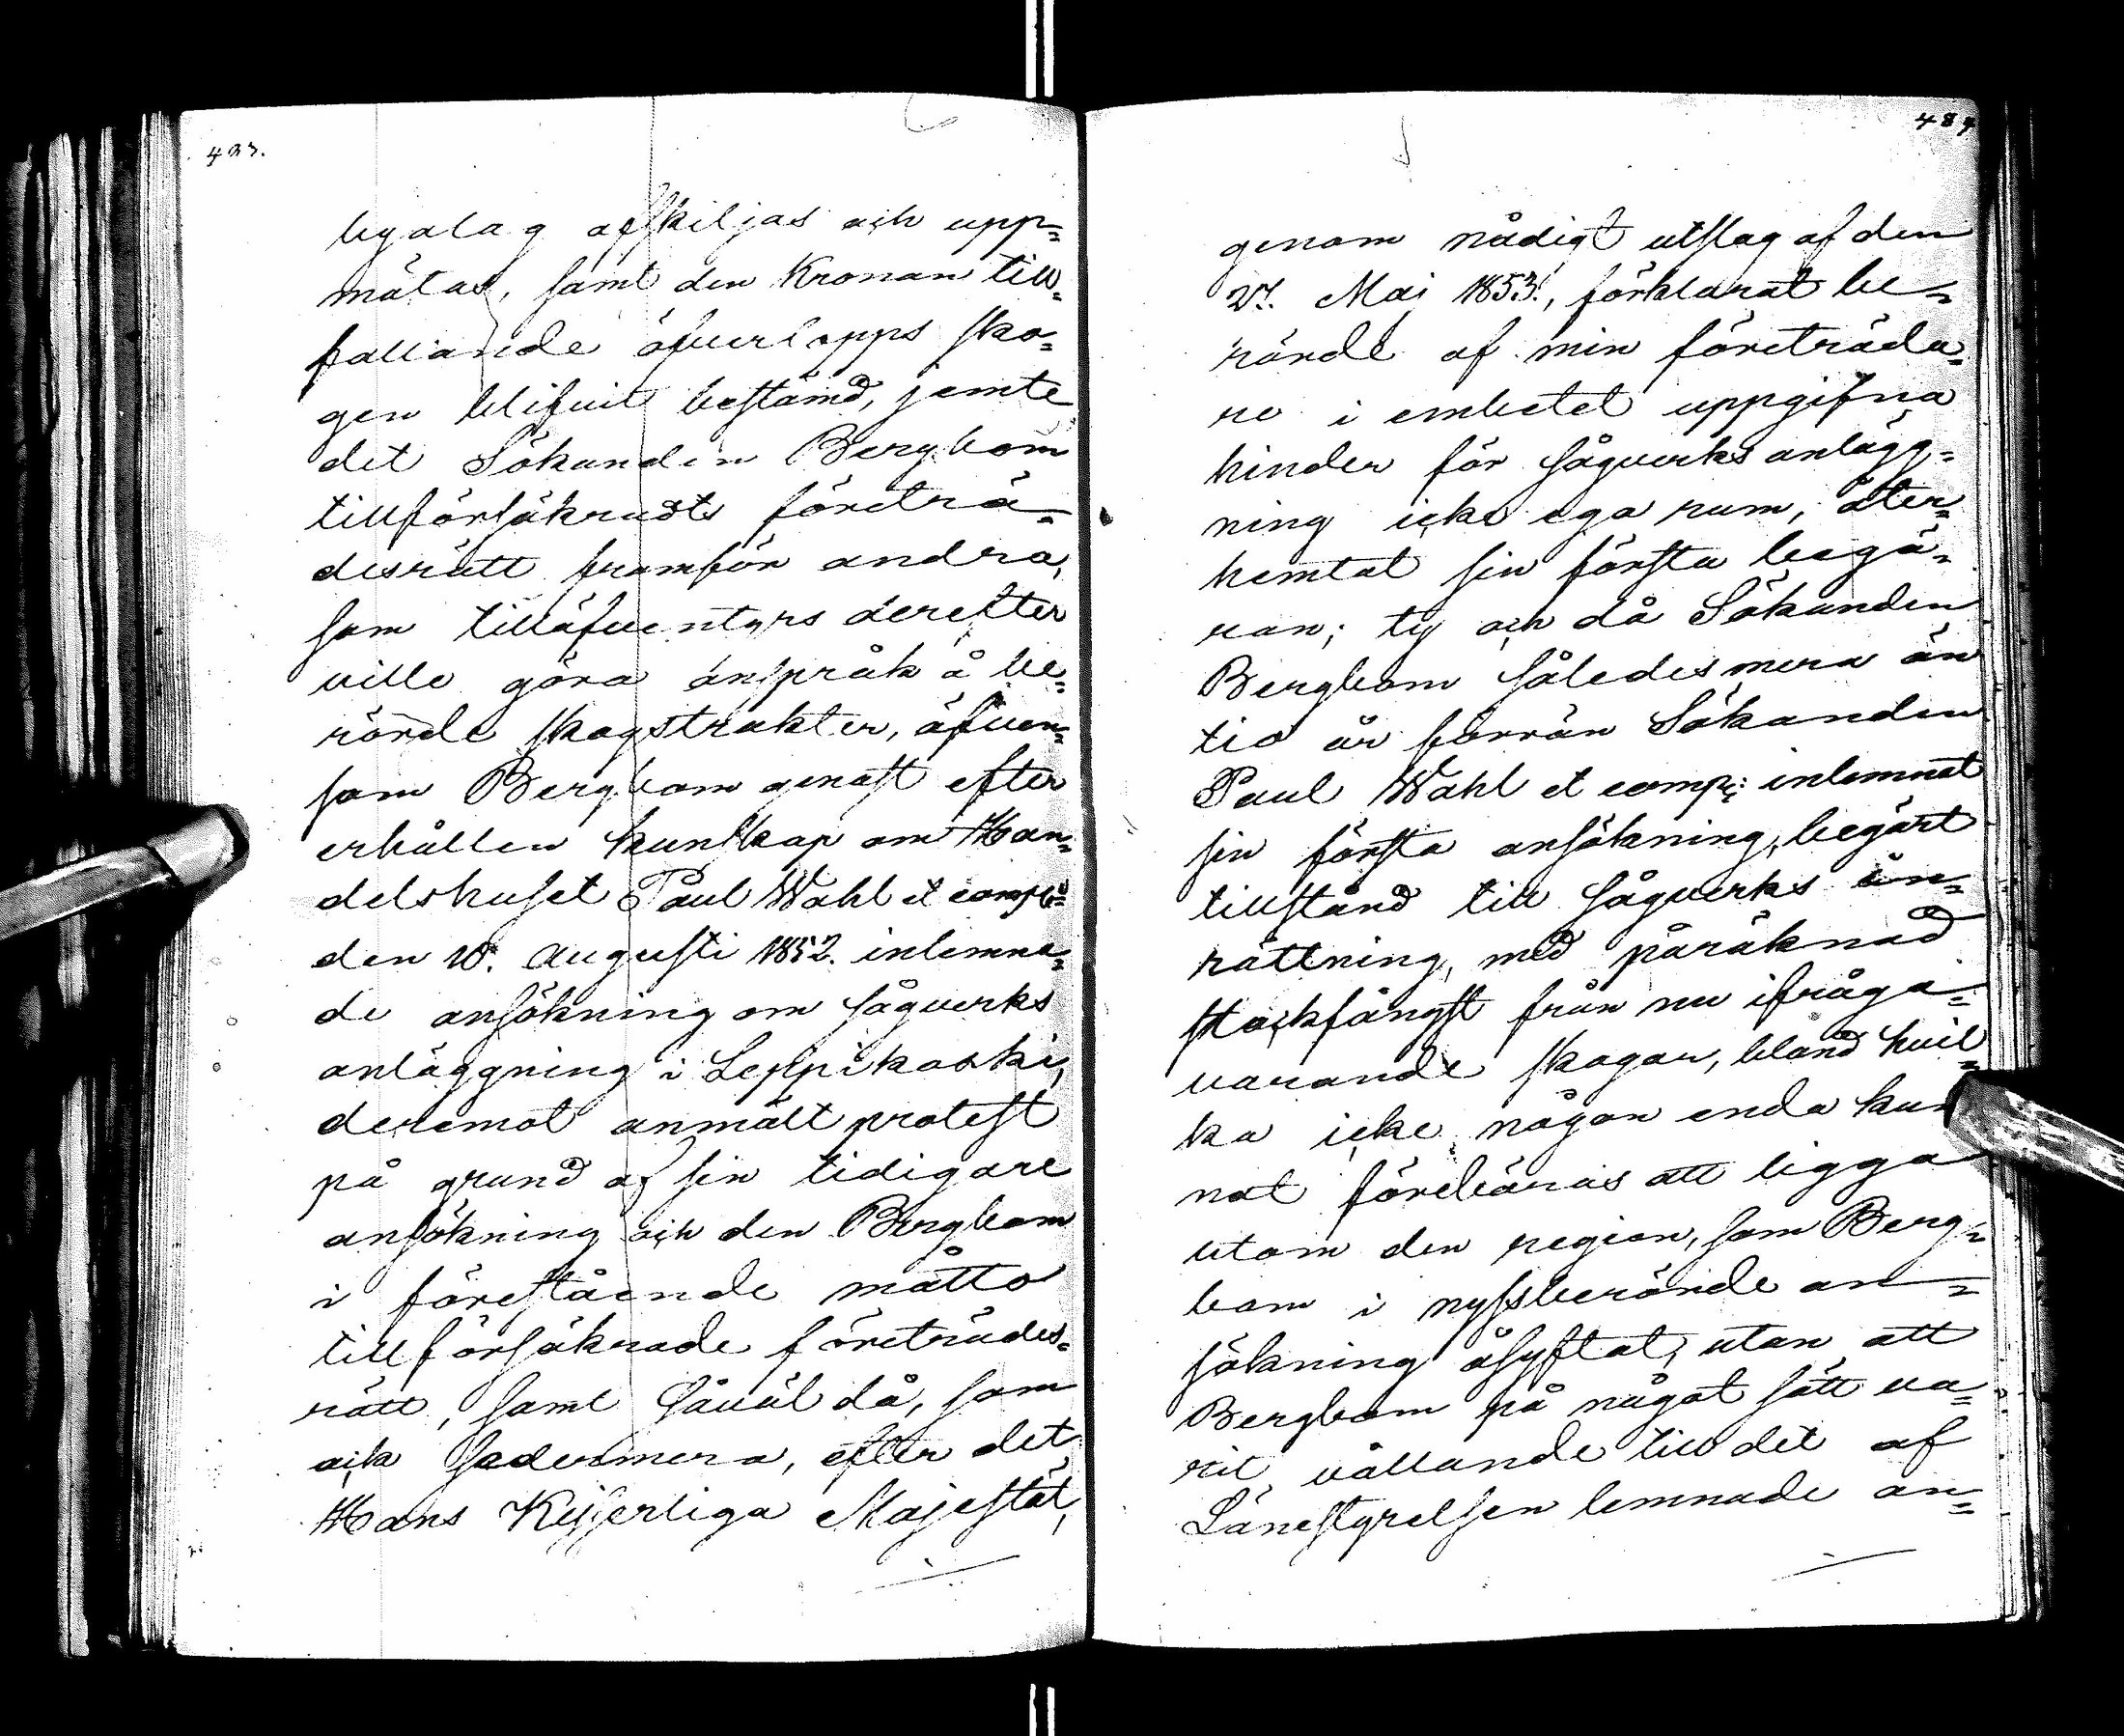 423.
byalag afskiljas och upp=
mätas, samt den Kronan till=
fallande öfverlopps sko=
gen blifvit bestämd, jemte
det Sökanden Bergbom
tillförsäkrats företrä=
desrätt framför andra,
som tilläfventyrs derefter
ville göra anspråk å be=
rörde skogstrakter, äfven=
som Bergbom genast efter
erhållen kunskap om Han=
delshuset Paul Wahl et comp:s
den 10. Augusti 1852. inlemna=
de ansökning om sågverks
anläggning i Leppikoski,
deremot anmält protest
på grund af sin tidigare
ansökning och den Bergbom
i förestående måtto
tillförsäkrade företrädes=
rätt, samt såväl då, som
ock sedermera, efter det
Hans Kejserliga Majestät,
484
genom nådigt utslag af den
27. Maj 1853., förklarat be=
rörde af min företräda=
re i embetet uppgifna
hinder för sågverks anlägg=
ning icke ega rum, åter=
hemtat sin första begä=
ran; ty och då Sökanden
Bergbom således mera än
tio år förrän Sökanden
Paul Wahl et comp: inlemnat
sin första ansökning, begärt
tillstånd till sågverks in=
rättning, med påräknad
stockfångst från nu ifråga=
varande skogar, bland hvil=
ka icke någon enda kun
nat förebäras att ligga
utom den region, som Berg=
bom i nyssberörde an=
sökning åsyftat, utan att
Bergbom på något sätt va=
rit vållande till det af
Länestyrelsen lemnade an=